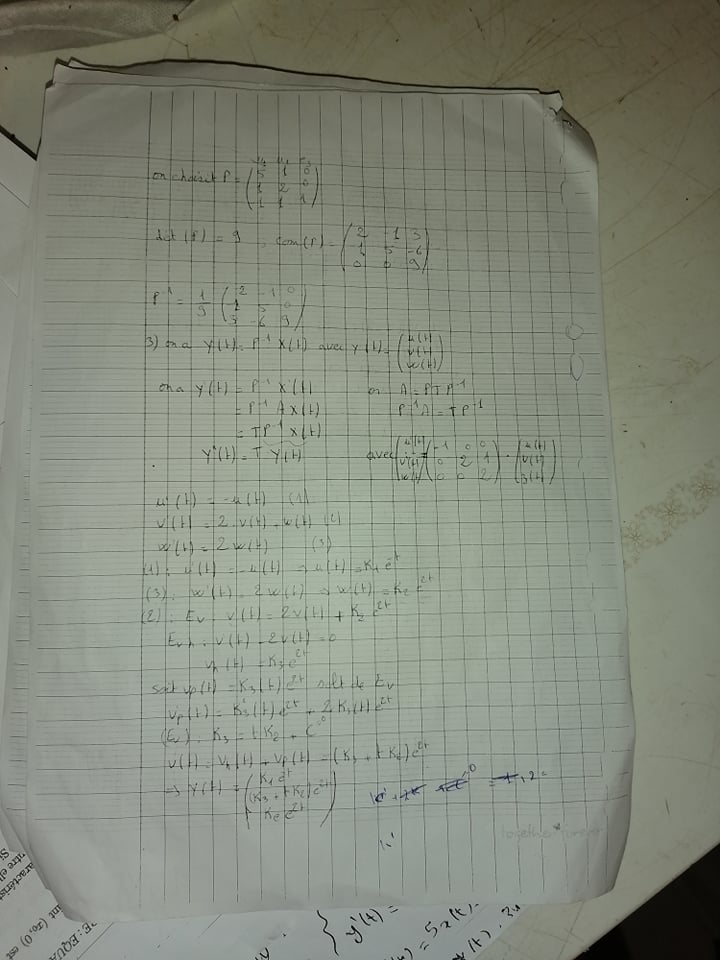 on choisit P = ( 5 1 0
1 2 0
1 1 1 )
det (P) = 9 , com(P) = ( 2 -1 3
1 5 -6
0 0 9 )
P⁻¹ = 1/9 ( 2 -1 0
-1 5 0
3 -6 9 )
3) on a Y(t) = P⁻¹ X(t) avec Y(t) = ( u(t)
v(t)
w(t) )
on a Y(t) = P⁻¹ X'(t) or A = PTP⁻¹
= P⁻¹ A X(t) P⁻¹A = TP⁻¹
= TP⁻¹ X(t)
Y'(t) = T Y(t) avec ( u'(t)
v'(t)
w'(t) ) = ( -1 0 0
0 2 1
0 0 2 ) · ( u(t)
v(t)
z(t) )
u'(t) = -u(t) (1)
v'(t) = 2 v(t) + w(t) (2)
w'(t) = 2 w(t) (3)
(1) : u'(t) = -u(t) ⇒ u(t) = K₁ e⁻ᵗ
(3) : w'(t) = 2 w(t) ⇒ w(t) = K₂ e²ᵗ
(2) : Ev : v'(t) = 2v(t) + K₂ e²ᵗ
Evh : v'(t) - 2v(t) = 0
vh(t) = K₃ e²ᵗ
soit vp(t) = K₃(t) e²ᵗ solt de Ev
v'p(t) = K'₃(t) e²ᵗ + 2 K₃(t) e²ᵗ
(Ev) : K₃ = t K₂ + C⁼⁰
v(t) = vh(t) + vp(t) = (K₃ + t K₂) e²ᵗ
⇒ Y(t) = ( K₁ e⁻ᵗ
(K₃ + t K₂) e²ᵗ
K₂ e²ᵗ )
together forever
y'(t) =
= 5x(t)